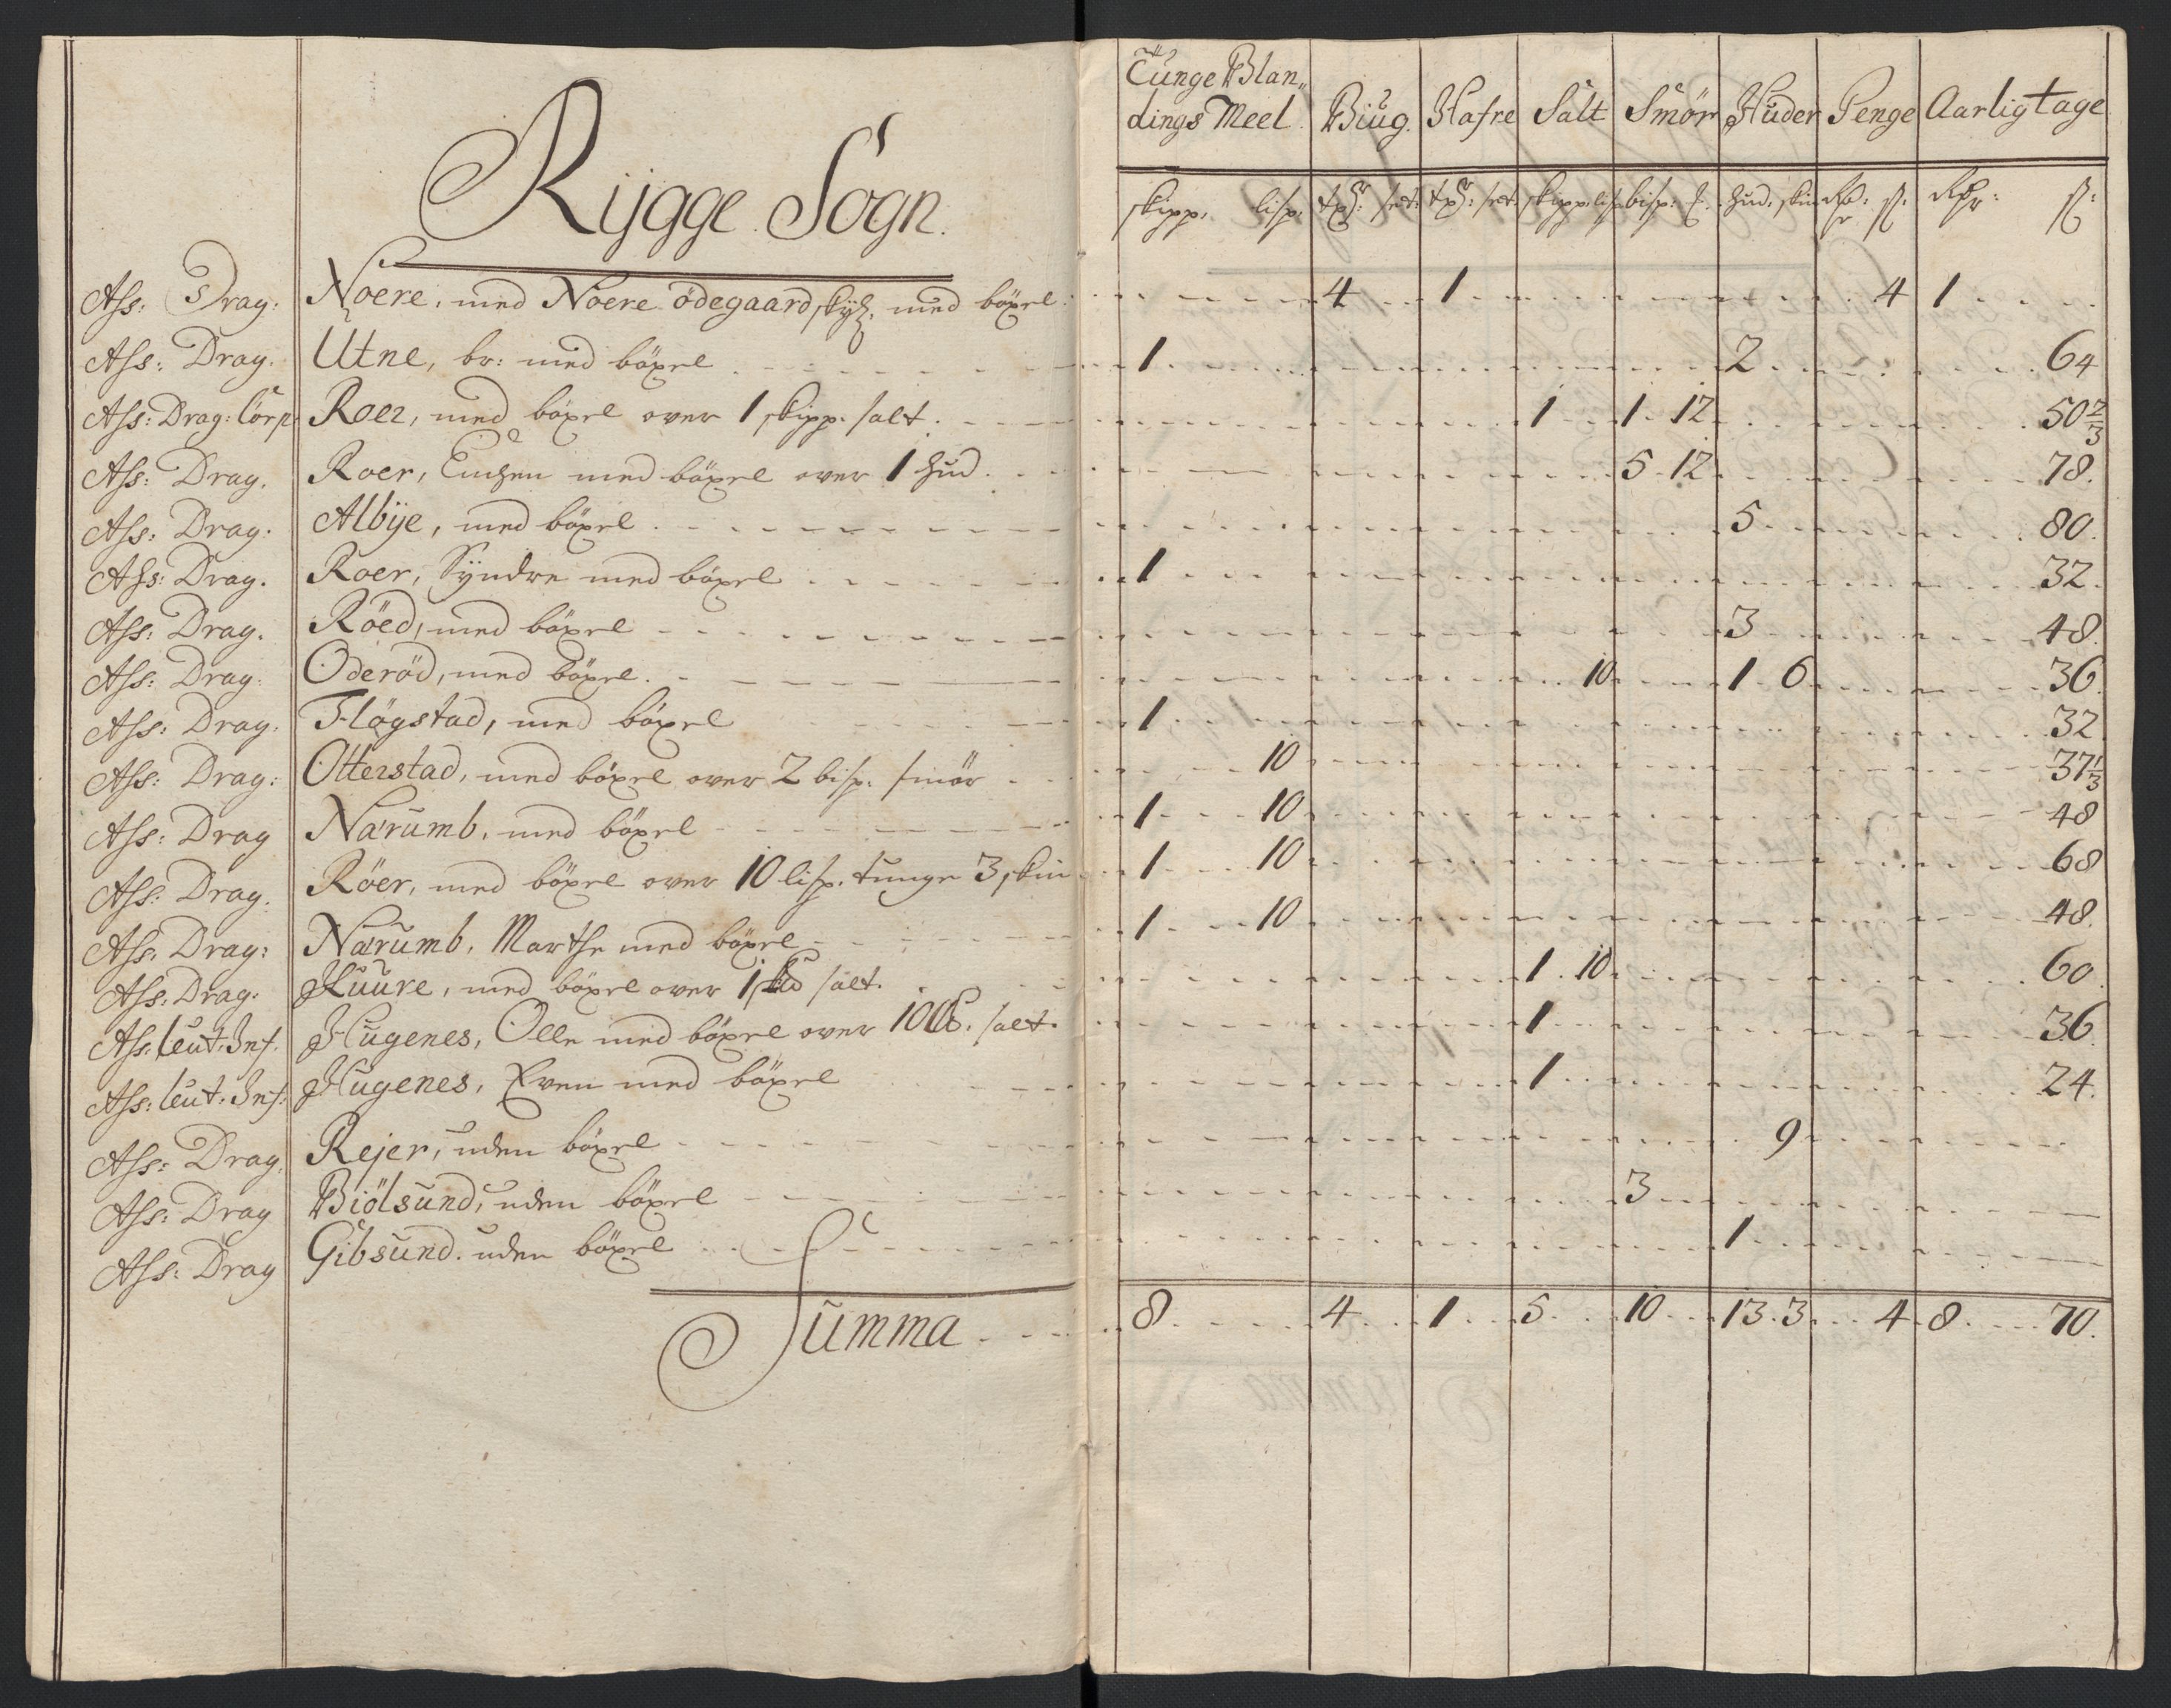 Rÿgge Sogn.
Tunge Blan„
dings Meel. Biug. Hafre Salt Smör Huder Penge Aarlig tage
skipp. lisp. skipp. lis bisp: hud. skin
Ass: Drag: Noere, med Noere ödegaard med böxel: 4 1 4 1
Ass: Drag. Utne, br: med böxel 1 2 64
Ass: Drag: Corp Roer, med böxel over 1 skipp. salt. 1 1 12 50 2/3
Ass: Drag. Roer, med böxel over 1 hud. 5 12 78.
Ass: Drag: Albÿe, med böxel. 5 80.
Ass: Drag. Roer, Syndre med böxel 1 32.
Ass: Drag. Röed, med böxel 3 48.
Ass: Drag. Oderöd, med böxel. 10 1 6 36.
Ass: Drag. Flögstad, med böxel 1 32
Ass: Drag: Otterstad, med böxel over 2 bisp. smör 10 37 1/3
Ass: Drag Narumb, med böxel 1 10 48
Ass: Drag. Röer, med böxel over 10 lisp. tunge 3 skin 1 10 68
Ass: Drag: Narumb, Marthe med böxel 1 10 48.
Ass: Drag. Huure, med böxel over 1 salt. 1 10 60.
Ass: leut: Inf. Hugenes, Olle med böxel over 10 salt. 1 36.
Ass: leut: Inf: Hugenes, Even med böxel 1 24.
Ass: Drag. Rejer, uden böxel 9
Ass: Drag Biölsund, uden böxel 3
Ass: Drag Gibsund. uden böxel 1
Summa 8 4 1 5 10 13. 3 4 8 70.